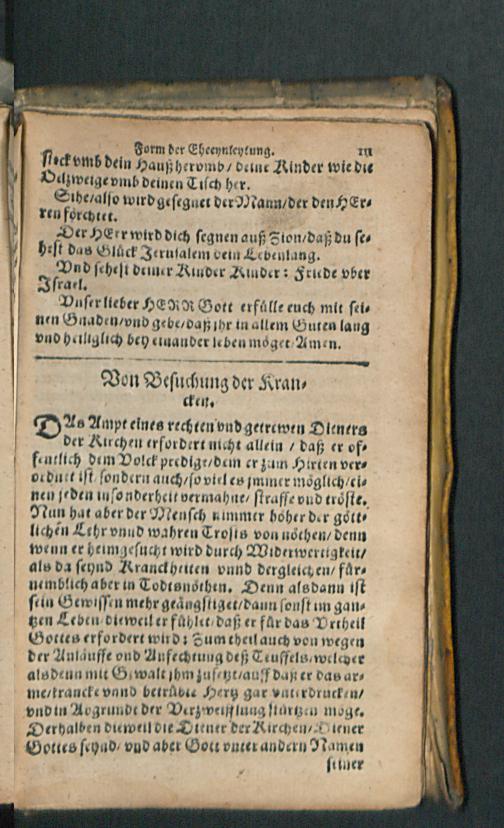 Form der Eheeynleytung. 111
stock vmb dein Hauß hervmb / deine Kinder wie die
Oelzweige vmb deinen Tisch her.
Sihe / also wird gesegnet der Mann / der den HEr-
ren förchtet.
Der HErr wird dich segnen auß Zion / daß du se-
hest das Glück Jerusalem dein Lebenlang.
Vnd sehest deiner Kinder Kinder : Friede vber
Israel.
Vnser lieber HERR Gott erfülle euch mit sei-
nen Gnaden / vnd gebe / daß ihr in allem Guten lang
vnd heiliglich bey einander leben möget / Amen.
Von Besuchung der Kran-
cken.
DAs Ampt eines rechten vnd getrewen Dieners
der Kirchen erfordert nicht allein / daß er of-
fentlich dem Volck predige / dem er zum Hirten ver-
ordnet ist / sondern auch / so viel es jmmer möglich / ei-
nen jeden in sonderheit vermahne / straffe vnd tröste.
Nun hat aber der Mensch nimmer höher der gött-
lichen Lehr vnnd wahren Trosts von nöthen / denn
wenn er heimgesucht wird durch Widerwertigkeit /
als da seynd Kranckheiten vnnd dergleichen / für-
nemblich aber in Todtsnöthen. Denn alsdann ist
sein Gewissen mehr geängstiget / dann sonst im gan-
tzen Leben / dieweil er fühlet / daß er für das Vrtheil
Gottes erfordert wird : Zum theil auch von wegen
der Anläuffe vnd Anfechtung deß Teuffels / welcher
alsdenn mit Gewalt jhm zusetzt / auff daß er das ar-
me / krancke vnnd betrübte Hertz gar vnterdrucken /
vnd in Abgrunde der Verzweifflung stürtzen möge.
Derhalben dieweil die Diener der Kirchen / Diener
Gottes seynd / vnd aber Gott vnter andern Namen
seiner